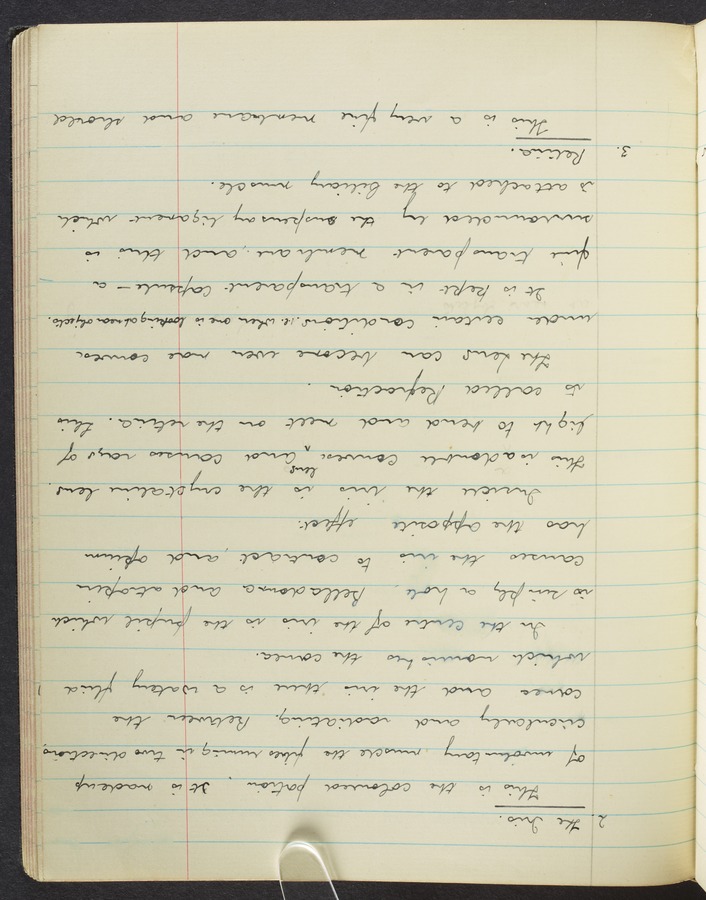 2. The Iris.
This is the coloured potion. It is made up
of involuntary muscle the fibes running in two directions,
circularly and radiating. Between the
cornea and the iris there is a watery fluid
which nourishes the cornea.
In the centre of the iris is the pupil which
is simply a hole. Belladonna and atropin
causes the iris to contract, and opium
has the opposite effect.
Inside the iris is the crystaline lens.
This is a double convex lens and causes rays of
light to bend and meet on the retina. This
is called Refraction.
The lens can become even more convex
under certain conditions. i.e. when one is looking at near objects.
It is kept in a transparent capsule - a
fine transparent membrane, and this is
surrounded by the suspensary ligament which
is attached to the Ciliary muscle.
3. Retina.
This is a very fine membrane and should